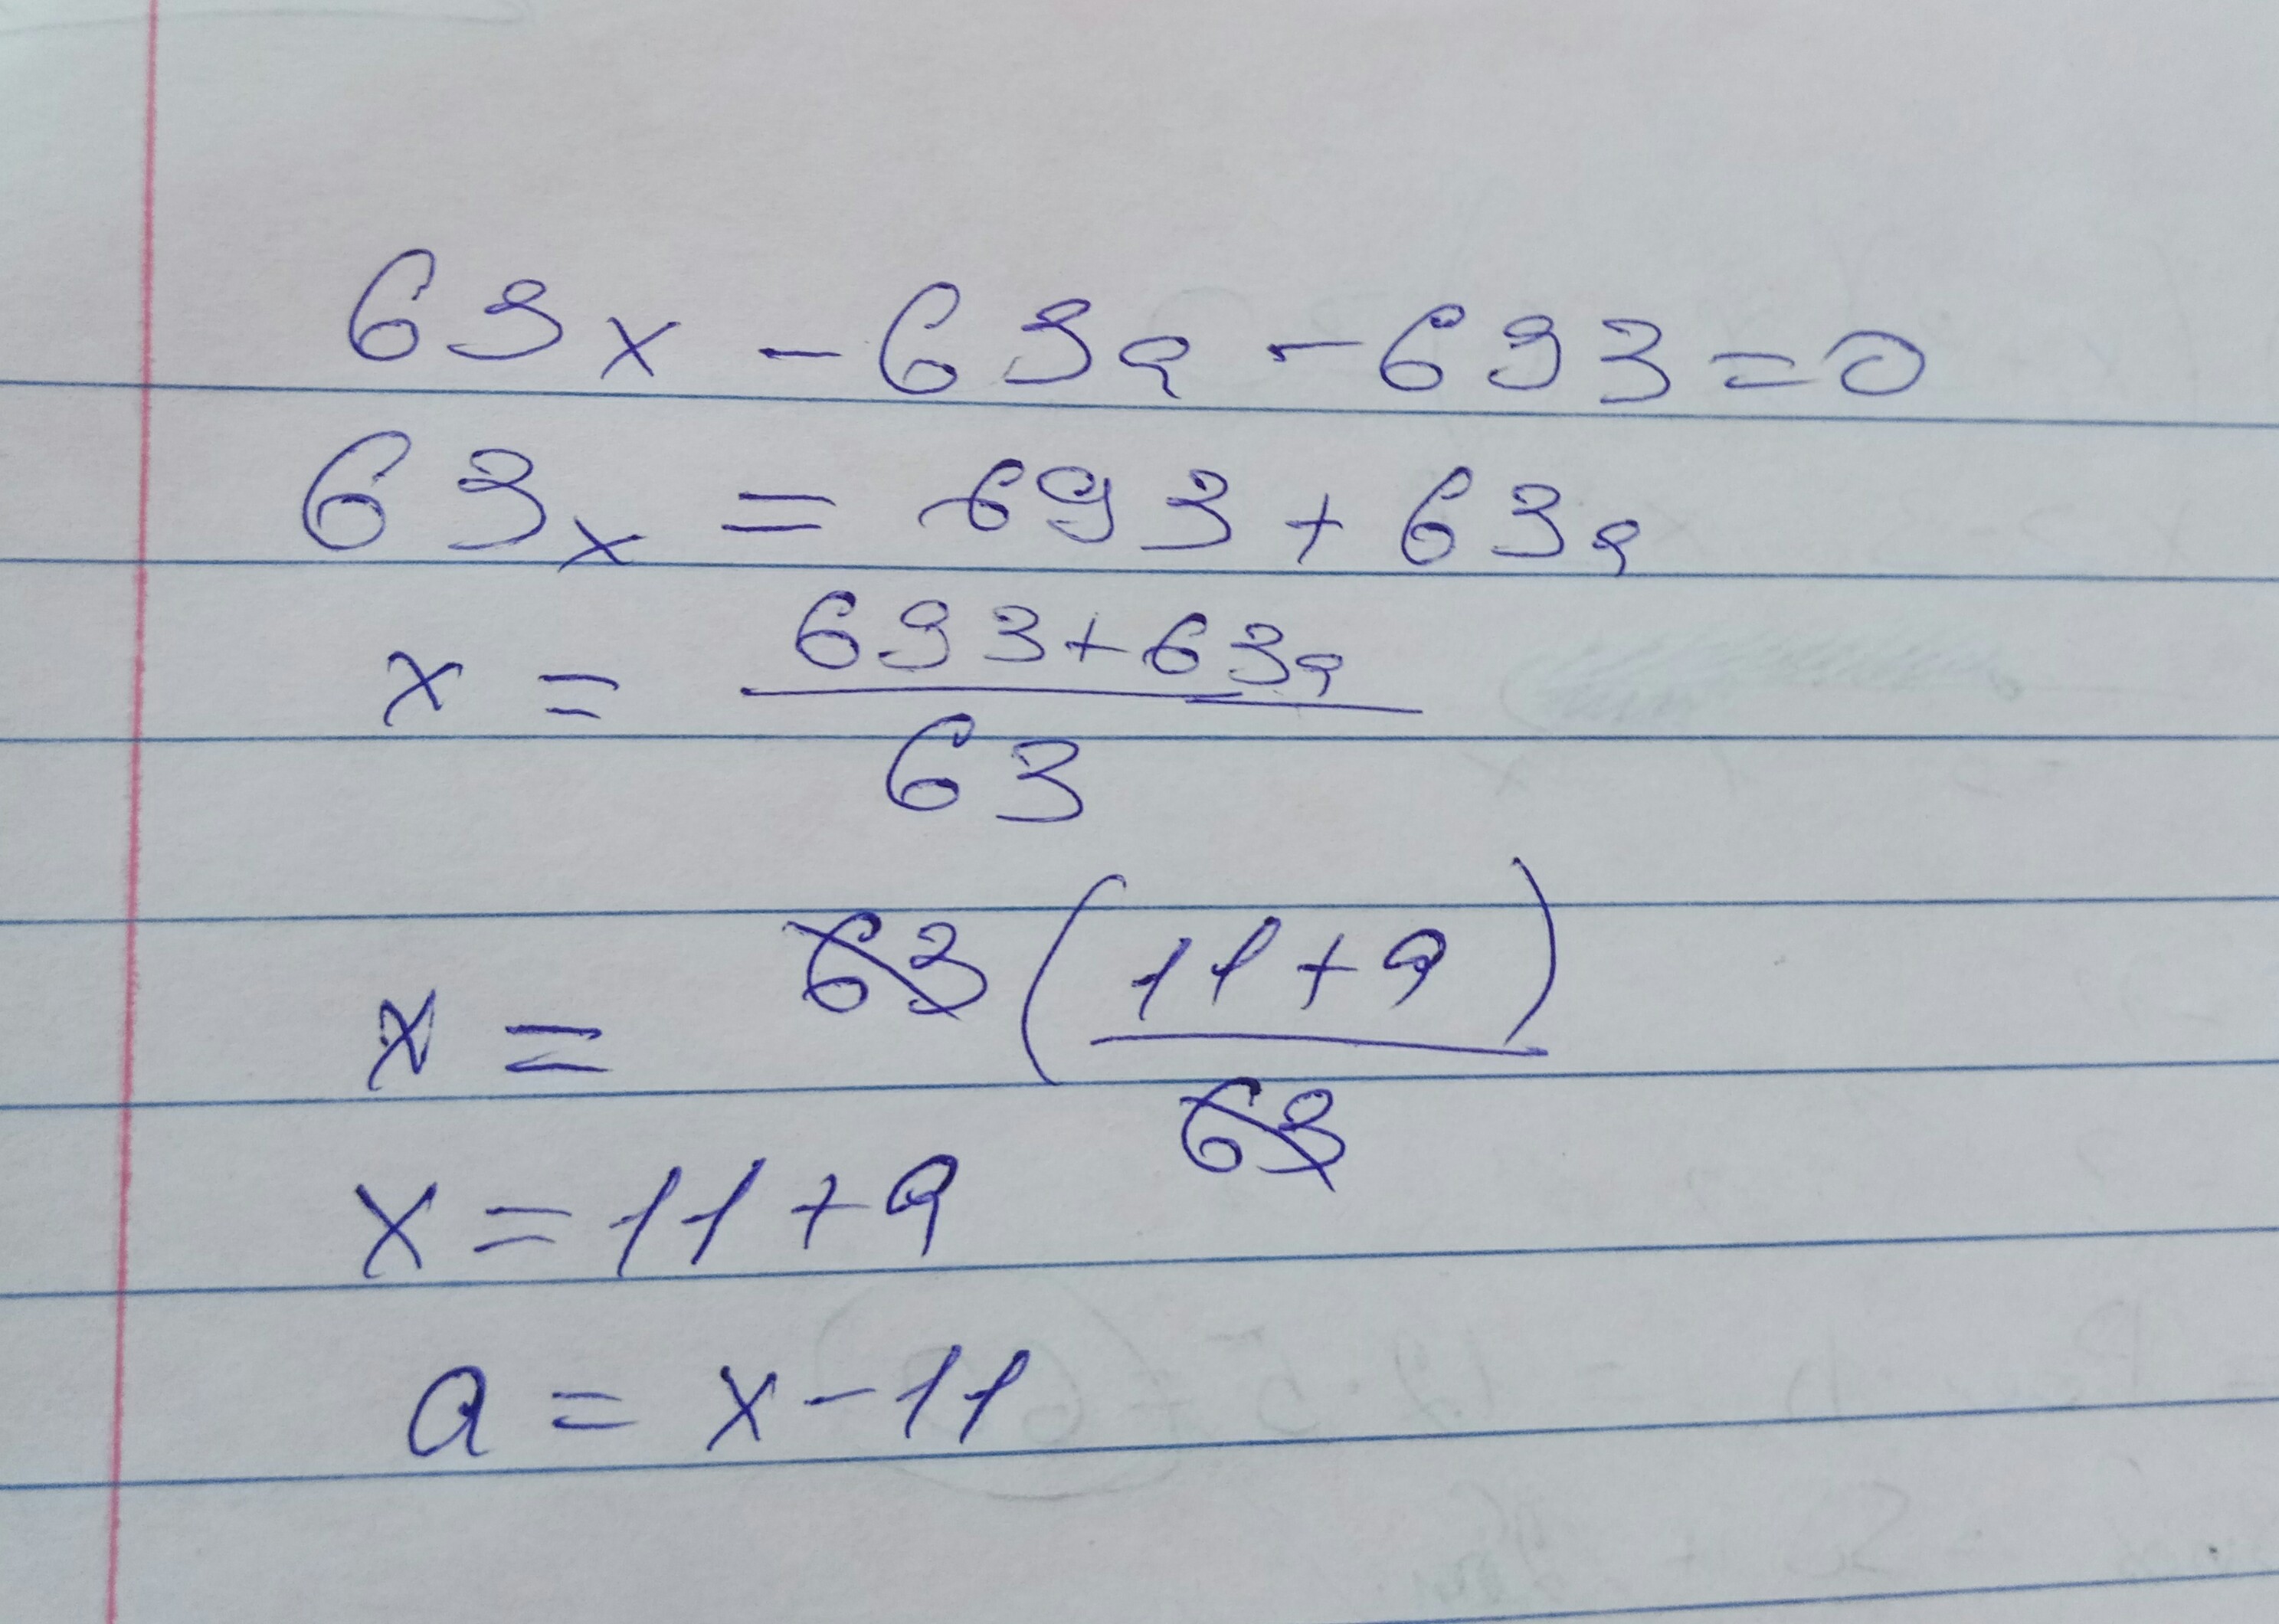 63x - 63a - 693 = 0
63x = 693 + 63a
x = \frac{693+63a}{63}
x = \frac{63(11+a)}{63}
x = 11 + a
a = x - 11